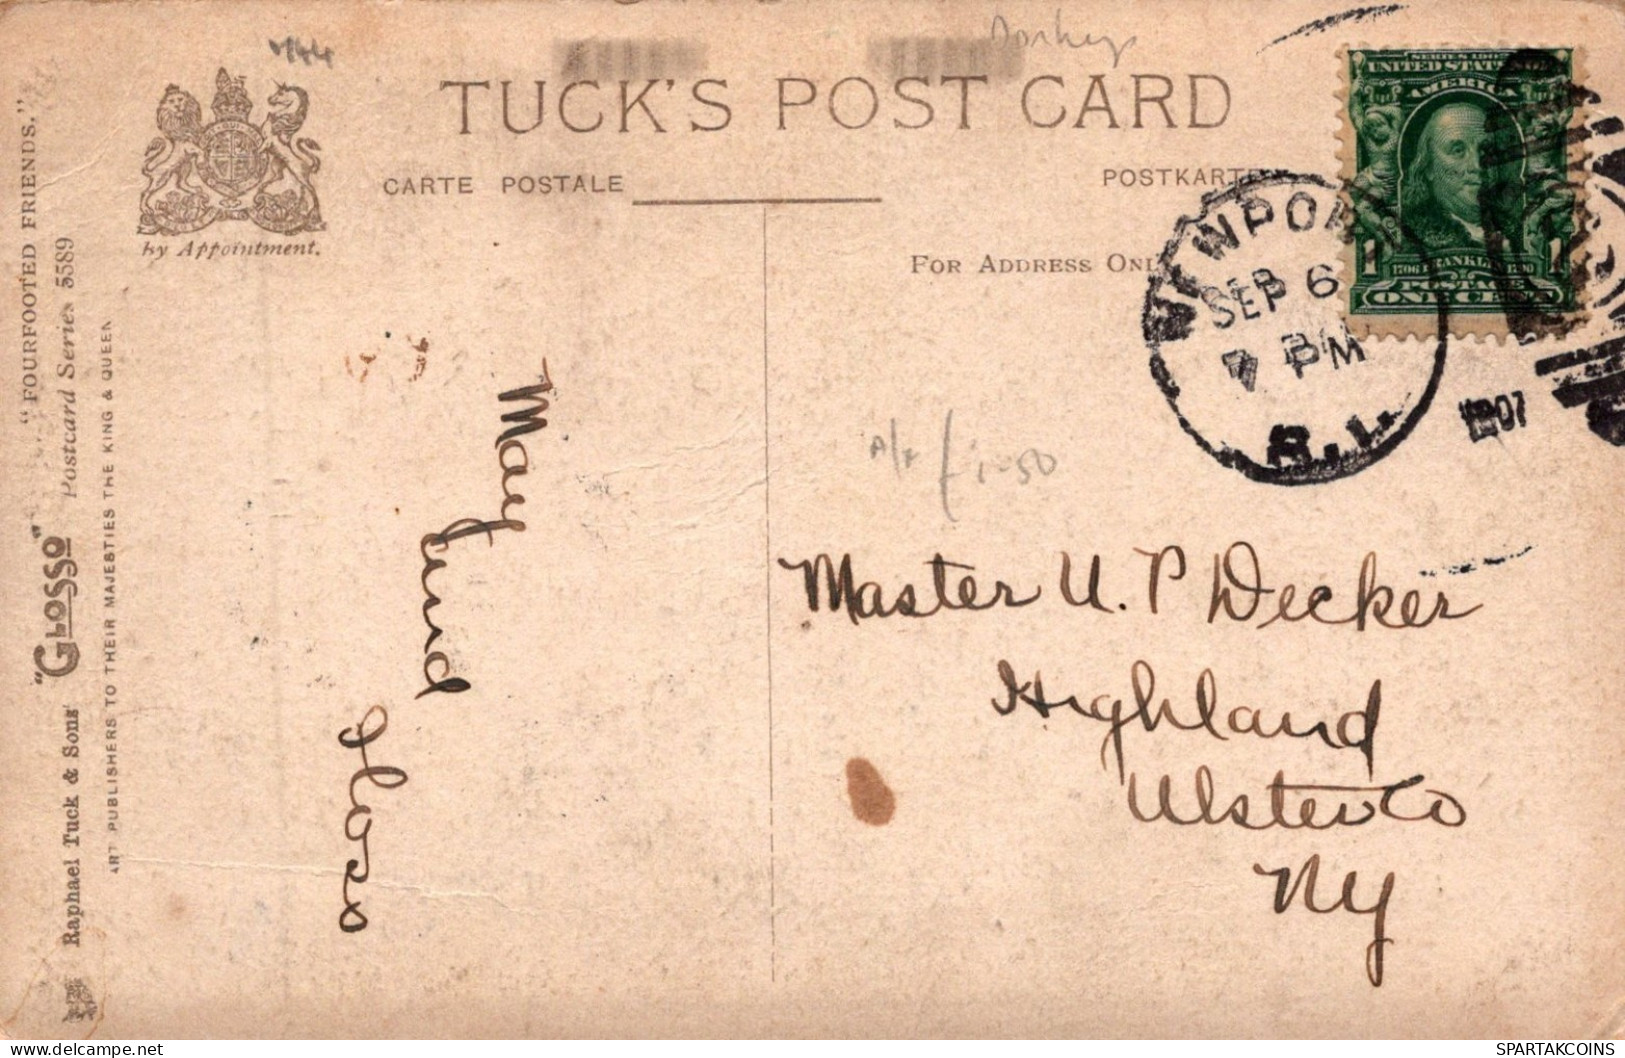 Donkeys
TUCK'S POST CARD
CARTE POSTALE
POSTKARTE
by Appointment.
FOR ADDRESS ONL
SERIES 1902
UNITED STATES OF
AMERICA
1 1
1706 FRANKLIN 1790
POSTAGE
ONE CENT
NEWPORT
SEP 6
7 PM
R.I.
1907
£1-50
Master U. P Decker
Highland
Ulster Co
NY
May
and
"FOURFOOTED FRIENDS."
Raphael Tuck & Sons' "GLOSSO" Postcard Series 3589
ART PUBLISHERS TO THEIR MAJESTIES THE KING & QUEEN
SPARTAKCOINS on delcampe.net